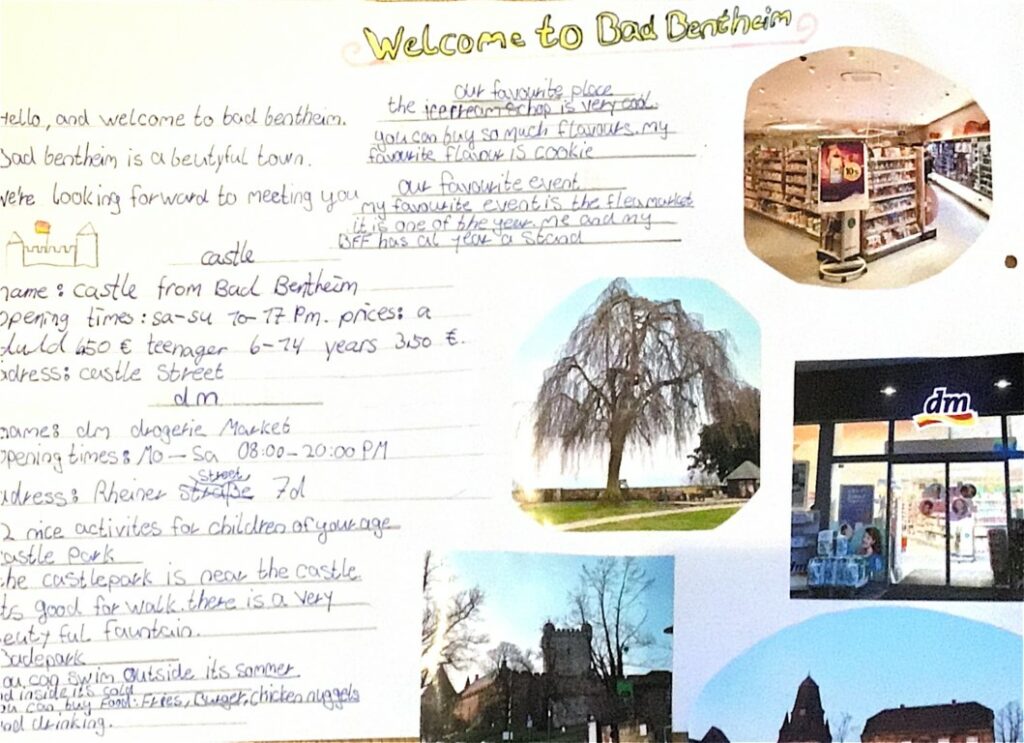 Welcome to Bad Bentheim
Hello, and welcome to bad bentheim.
Bad bentheim is a beutyful town.
We're looking forward to meeting you
castle
name: castle from Bad Bentheim
opening times: sa-su 10-17 Pm. prices: a
duld 4,50 € teenager 6-14 years 3,50 €.
adress: castle Street
dm
names: dm drogerie Market
opening times: Mo – Sa 08:00-20:00 PM
Street
adress: Rheiner straße 7d
2 nice activites for children of your age
castle park
the castlepark is near the castle
its good for walk. there is a very
beuty ful fauntain.
Badepark
you can swim outside its sommer
and inside its cold
you can buy Food: Fries, Burger, chicken nuggets
and drinking.
our favourite place
the icecream schop is very cool.
you can buy so much flavours. my
favourite flavour is cookie
our favourite event
my favourite event is the fleumarket
it is one of the year. me and my
BFF has al year a stand
dm